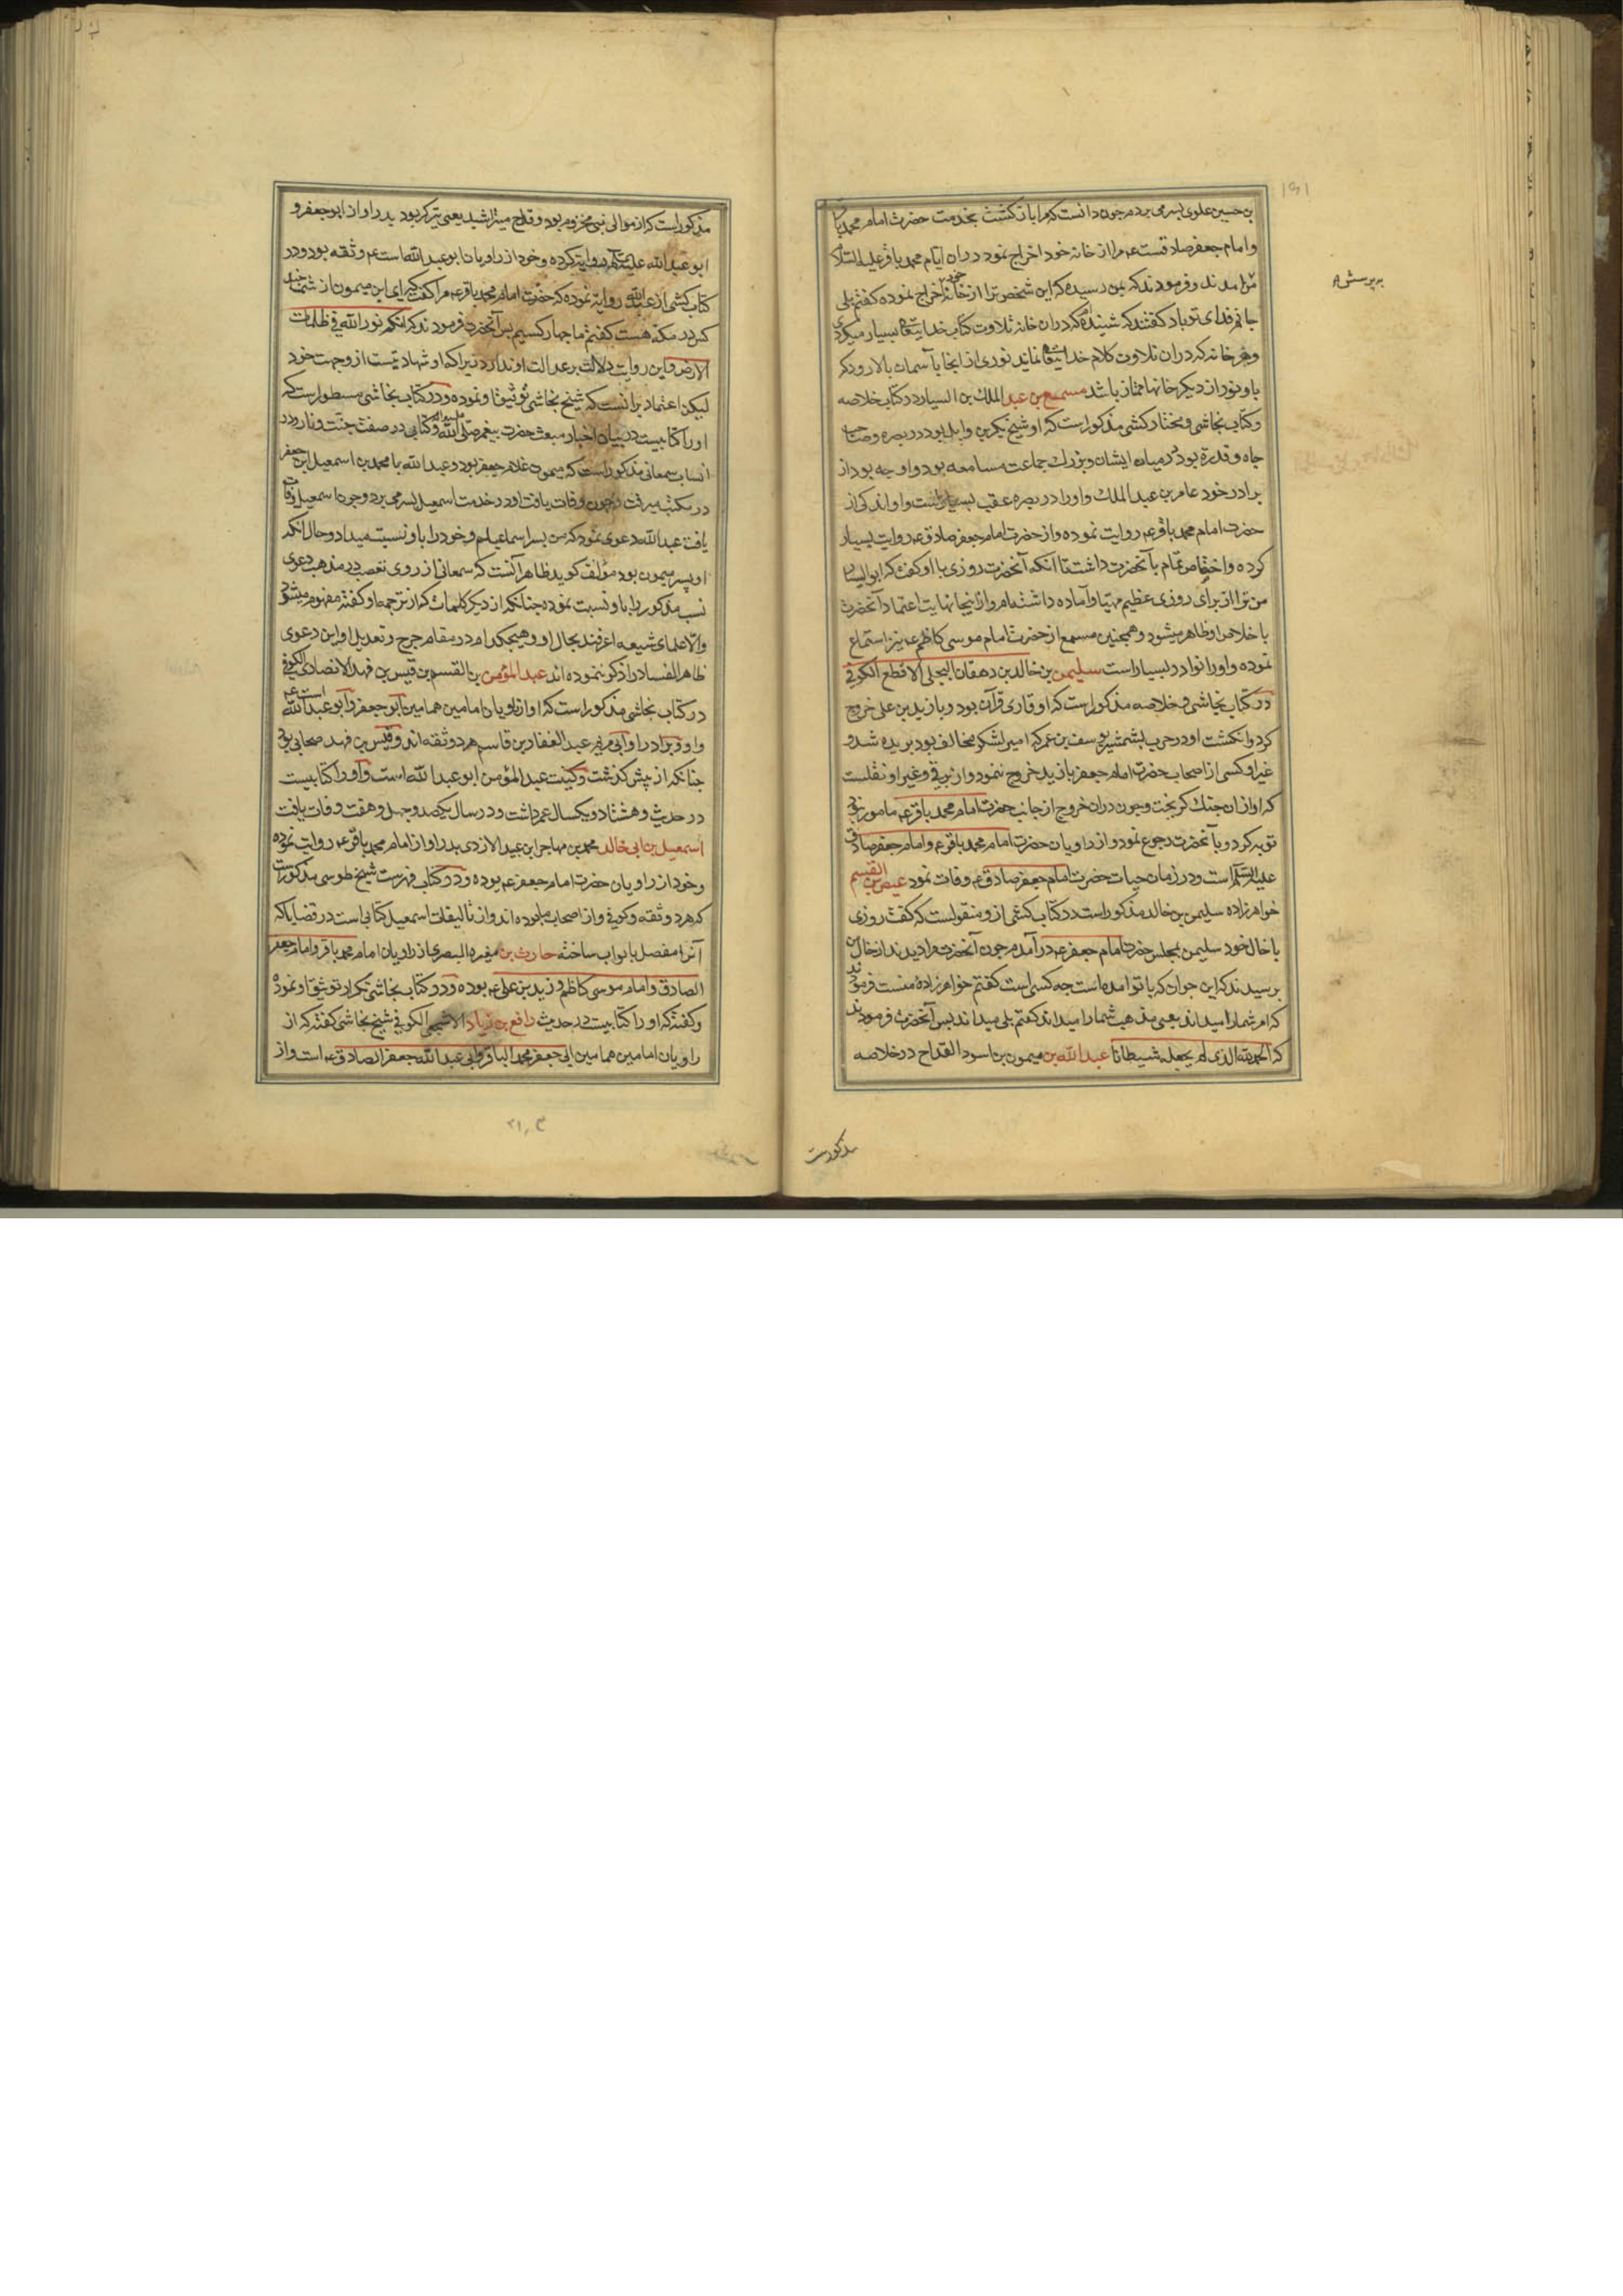 بن حسین علوی بسر می بردم چون دانست که مرا بازگشت بخدمت حضرت امام محمد باقر
و امام جعفر صادقست عم مرا از خانه خود اخراج نمود در ان ایام محمد باقر علیه السلام
مرا مدند و فرمودند که بمن رسیده که این شخص ترا از خانه خود اخراج نموده کفتم بلی
جانم فدای تو باد کفتند که شنیده ام که در ان خانه تلاوت کتاب خدایتعالی بسیار میکردی
و هر خانه که در ان تلاوت کلام خدایتعالی نمایند نوری از انجا بآسمان بالا رود که
با و نور از دیکر خانها ممتاز باشد مسمع بن عبد الملک بن السیار در کتاب خلاصه
و کتاب نجاشی و مختار کشی مذکور است که او شیخ بکر بن وایل بود در بصره و صاحب
جاه و قدر بود در میان ایشان و بزرک جماعت مسامعه بود و اوجه بود از
برادر خود عامر بن عبد الملک و او را در بصره عقب بسیار است و او اندکی از
حضرت امام محمد باقر عم روایت نموده و از حضرت امام جعفر صادق عم روایت بسیار
کرده و اختصاص تمام بآنحضرت داشت تا انکه آنحضرت روزی با او کفت که ابو السیار
من ترا از برای روزی عظیم مهیا و آماده داشته ام و از اینجا نهایت اعتماد آنحضرت
با خلاص او ظاهر میشود و همچنین مسمع از حضرت امام موسی کاظم عم نیز استماع
نموده و او را نوادر بسیار است سلیمن بن خالد بن دهقان البجلی الاقطع الکوفی
در کتاب نجاشی و خلاصه مذکور است که او قاری قرآن بود و با زید بن علی خروج
کرد و انکشت او در حرب بشمشیر یوسف بن عمر که امیر لشکر مخالف بود بریده شد و
غیر او کسی از اصحاب حضرت امام جعفر با زید خروج ننمود و از برقی و غیر او نقلست
که او از ان جنک کریخت و چون در ان خروج از جانب حضرت امام محمد باقر عم مامور نبود
توبه کرد و بآنحضرت رجوع نمود و از راویان حضرت امام محمد باقر عم و امام جعفر صادق
علیه السلم است و در زمان حیات حضرت امام جعفر صادق عم وفات نمود عیص بن القسم
خواهرزاده سلیمن بن خالد مذکور است در کتاب کشی از و منقولست که کفت روزی
با خال خود سلیمن بمجلس حضرت امام جعفر عم در آمدم چون آنحضرت مرا دیدند از خال من
پرسیدند که این جوان که با تو امده است چه کسی است کفتم خواهرزاده منست فرمودند
که امر شما را میداند یعنی مذهب شما را میداند کفتم بلی میداند پس آنحضرت فرمودند
که الحمد لله الذی لم یجعله شیطانا عبد الله بن میمون بن اسود القداح در خلاصه
مذکورست
مذکور است که از موالی بنی مخزوم بود و قداح میتراشید یعنی تیرکر بود پدر او از ابو جعفر و
ابو عبد الله علیهما السلم روایت کرده و خود از راویان ابو عبد الله است عم و ثقه بود و در
کتاب کشی از عبد الله روایت نموده که حضرت امام محمد باقر عم مرا کفت که ای ابن میمون از شما چند
کس در مکه هست کفتم ما چهار کسیم پس آنحضرت فرمودند که انکم نور الله فی ظلمات
الارض و این روایت دلالت بر عدالت او ندارد زیرا که او شهادتست از و جهت خود
لیکن اعتماد برانست که شیخ نجاشی توثیق او نموده و در کتاب نجاشی مسطور است که
او را کتابیست در بیان اخبار مبعث حضرت پیغمبر صلی الله علیه و اله و کتابی در صفت جنت و نار و در
انساب سمعانی مذکور است که میمون غلام جعفر بود و عبد الله با محمد بن اسمعیل ابن جعفر
در مکتب میرفت و چون وفات یافت او در خدمت اسمعیل بسر می برد و چون اسمعیل وفات
یافت عبد الله دعوی نمود که من پسر اسماعیلم و خود را باو نسبت میداد و حال انکه
او پسر میمون بود مؤلف کوید ظاهر آنست که سمعانی از روی تعصب در مذهب دعوی
نسب مذکور را باو نسبت نموده چنانکه از دیکر کلمات که از ترجمه او کفته مفهوم میشود
والا علمای شیعه اعرفند بحال او و هیچکدام در مقام جرح و تعدیل او این دعوی
ظاهر الفساد را ذکر ننموده اند عبد المؤمن بن القسم بن قیس بن فهد الانصاری الکوفی
در کتاب نجاشی مذکور است که او از راویان امامین همامین ابو جعفر و ابو عبد الله است عم
و او و برادر او ابی مریم عبد الغفار بن قاسم هر دو ثقه اند و قیس بن فهد صحابی بود
چنانکه از پیش کذشت و کنیت عبد المؤمن ابو عبد الله است و او را کتابیست
در حدیث و هشتاد و یکسال عمر داشت و در سال یکصد و چهل و هفت وفات یافت
اسمعیل بن ابی خالد محمد بن مهاجر ابن عبید الازدی پدر او از امام محمد باقر عم روایت نموده
و خود از راویان حضرت امام جعفر عم بوده و در کتاب فهرست شیخ طوسی مذکورست
که هر دو ثقه و کوفی و از اصحاب ما بوده اند و از تالیفات اسمعیل کتابی است در قضایا که
آنرا مفصل بابواب ساخته حارث بن مغیره البصری از راویان امام محمد باقر و امام جعفر
الصادق و امام موسی کاظم و زید بن علی عم بوده و در کتاب نجاشی تکرار توثیق او نموده
و کفته که او را کتابیست در حدیث رافع بن زیاد الاشجعی الکوفی شیخ نجاشی کفته که از
راویان امامین همامین ابی جعفر محمد الباقر و ابی عبد الله جعفر الصادق عم است و از